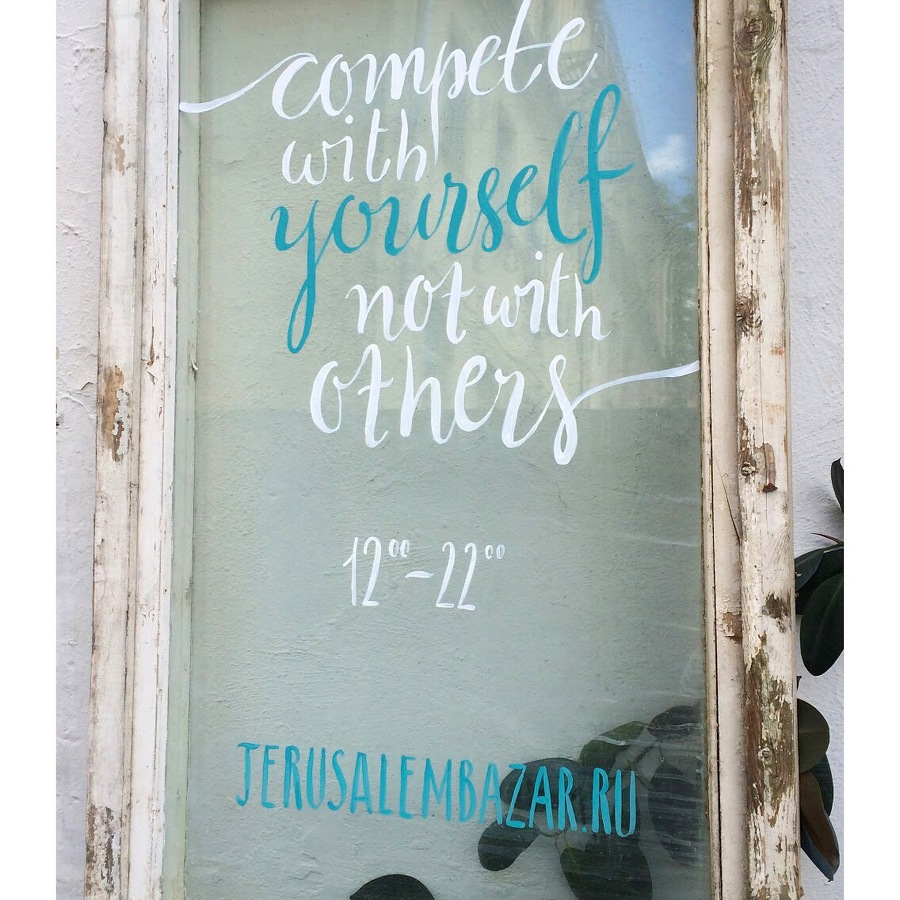 compete
with
yourself
not with
others
12⁰⁰-22⁰⁰
JERUSALEMBAZAR.RU